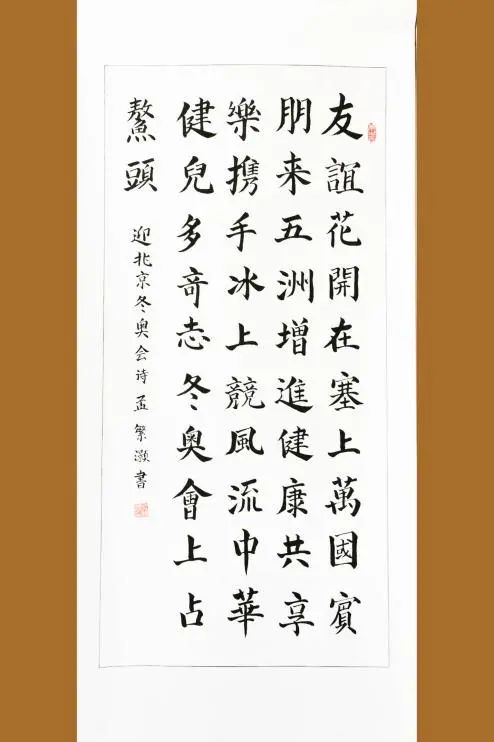 友誼花開在塞上萬國賓
朋来五洲增進健康共享
樂携手冰上競風流中華
健兒多奇志冬奥會上占
鰲頭
迎北京冬奥会诗孟繁灏書